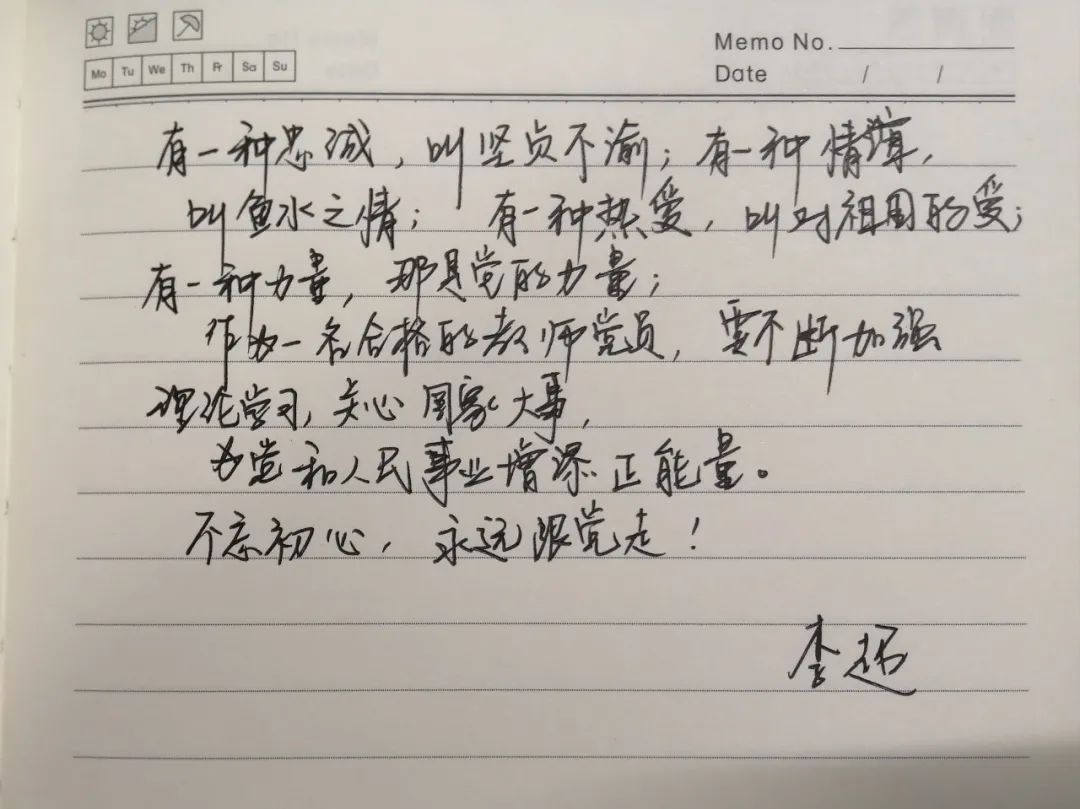 Mo Tu We Th Fr Sa Su
Memo No.
Date / /
有一种忠诚，叫坚贞不渝；有一种情薄，
叫鱼水之情；有一种热爱，叫对祖国的爱；
有一种力量，那是党的力量；
作为一名合格的教师党员，要不断加强
理论学习，关心国家大事，
为党和人民事业增添正能量。
不忘初心，永远跟党走！
李超